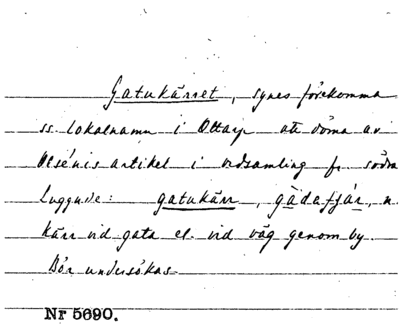 Gatukärret, synes förekomma
ss. lokalnamn i Ottarp att döma av
Olséns artikel i ordsamling fr. södra
Luggude: gatukärr, gàdafjár, n.
kärr vid gata el. vid väg genom by.
Bör undersökas.
Nr 5690.